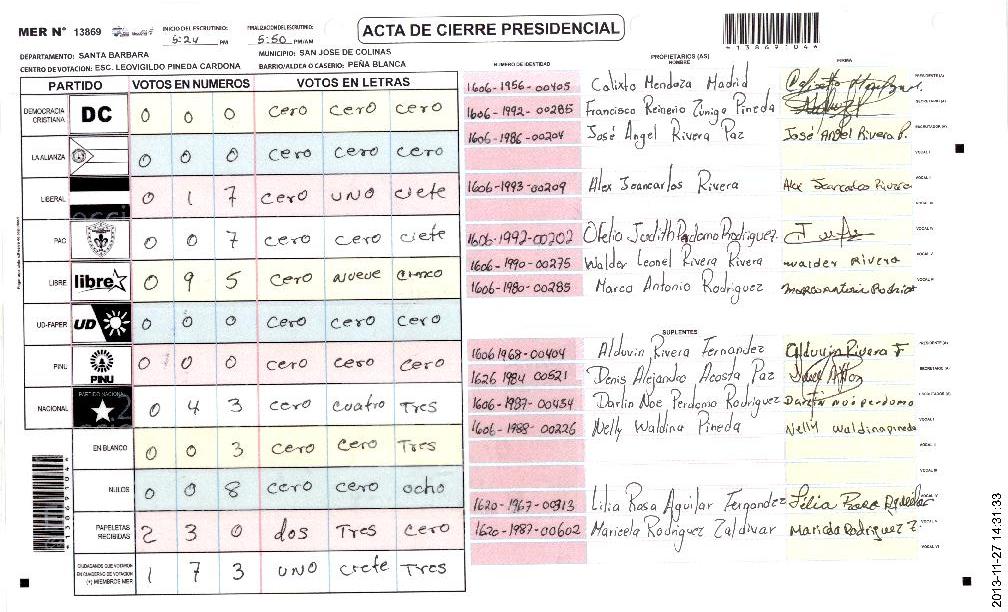 MER Nº 13869 INICIO DEL ESCRUTINIO: 5:24 PM FINALIZACION DEL ESCRUTINIO: 5:50 PM/AM
ACTA DE CIERRE PRESIDENCIAL
*138690 4*
DEPARTAMENTO: SANTA BARBARA MUNICIPIO: SAN JOSE DE COLINAS
CENTRO DE VOTACION: ESC. LEOVIGILDO PINEDA CARDONA BARRIO/ALDEA O CASERIO: PEÑA BLANCA
PARTIDO VOTOS EN NUMEROS VOTOS EN LETRAS
DEMOCRACIA CRISTIANA DC 0 0 0 cero cero cero
LA ALIANZA 0 0 0 cero cero cero
LIBERAL 0 1 7 cero uno ciete
PAC 0 0 7 cero cero ciete
LIBRE libre 0 9 5 cero nueve cinco
UD-FAPER UD 0 0 0 cero cero cero
PINU PINU 0 0 0 cero cero cero
NACIONAL PARTIDO NACIONAL 0 4 3 cero cuatro Tres
EN BLANCO 0 0 3 cero cero Tres
NULOS 0 0 8 cero cero ocho
PAPELETAS RECIBIDAS 2 3 0 dos Tres cero
CIUDADANOS QUE VOTARON EN CUADERNO DE VOTACION (+) MIEMBROS MER 1 7 3 uno ciete Tres
NUMERO DE IDENTIDAD PROPIETARIOS (AS) NOMBRE FIRMA
1606-1956-00405 Calixto Mendoza Madrid PRESIDENTE (A)
1606-1992-00285 Francisco Reinerio Zuniga Pineda SECRETARIO (A)
1606-1986-00204 José Angel Rivera Paz José Angel Rivera P. ESCRUTADOR (A)
VOCAL I
1606-1993-00209 Alex Joancarlos Rivera VOCAL II
VOCAL III
1606-1992-00202 Otelio Judith Perdomo Rodriguez VOCAL IV
1606-1990-00275 Walder Leonel Rivera Rivera Walder Rivera VOCAL V
1606-1980-00285 Marco Antonio Rodriguez VOCAL VI
SUPLENTES
1606 1968-00404 Alduvin Rivera Fernandez Alduvin Rivera F. PRESIDENTE (A)
1626 1984 00521 Denis Alejandro Acosta Paz SECRETARIO (A)
1606-1987-00454 Darlin Noe Perdomo Rodriguez Darlin noe perdomo ESCRUTADOR (A)
1606-1988-00226 Nelly Waldina Pineda Nelly waldina pineda VOCAL I
VOCAL II
VOCAL III
1620-1967-00313 Lilia Rosa Aguilar Fernandez VOCAL IV
1620-1987-00602 Maricela Rodriguez Zaldivar Maricela Rodriguez Z. VOCAL V
VOCAL VI
2013-11-27 14:31:33